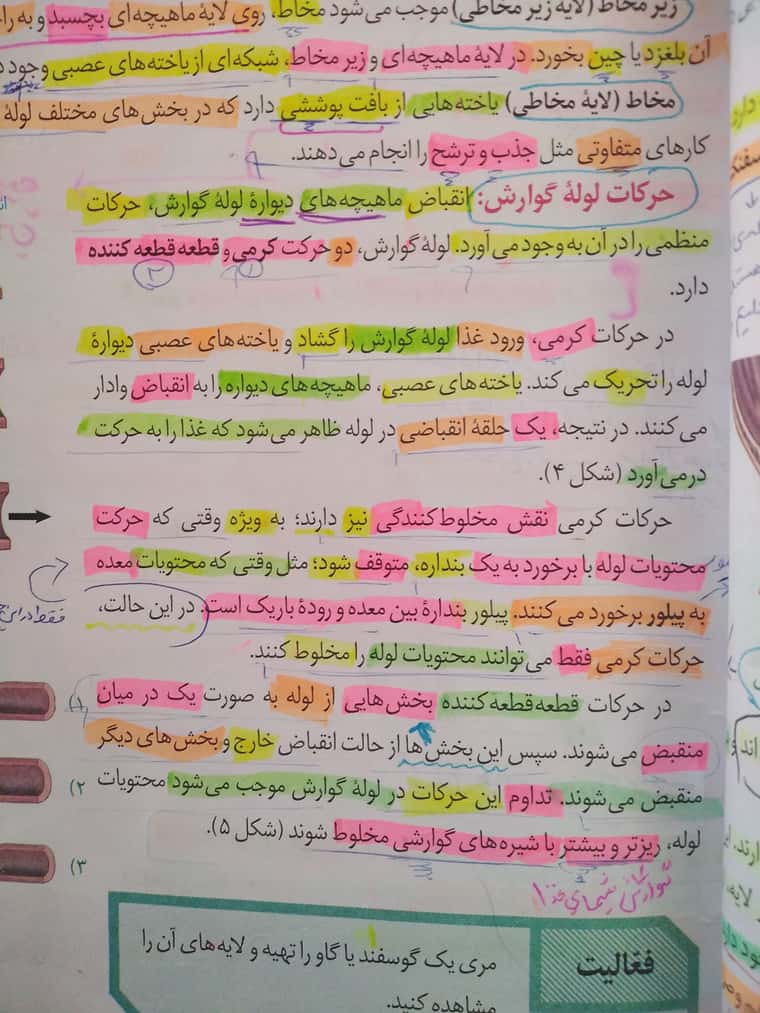 زیر مخاط (لایهٔ زیر مخاطی) موجب می‌شود مخاط، روی لایهٔ ماهیچه‌ای بچسبد و به را
آن بلغزد یا چین بخورد. در لایهٔ ماهیچه‌ای و زیر مخاط، شبکه‌ای از یاخته‌های عصبی وجود د
مخاط (لایهٔ مخاطی) یاخته‌هایی از بافت پوششی دارد که در بخش‌های مختلف لولهٔ
کارهای متفاوتی مثل جذب و ترشح را انجام می‌دهند.
حرکات لولهٔ گوارش: انقباض ماهیچه‌های دیوارهٔ لولهٔ گوارش، حرکات
منظمی را در آن به وجود می‌آورد. لولهٔ گوارش، دو حرکت کرمی و قطعه قطعه کننده
۱ ۲
دارد.
در حرکات کرمی، ورود غذا لولهٔ گوارش را گشاد و یاخته‌های عصبی دیوارهٔ
لوله را تحریک می‌کند. یاخته‌های عصبی، ماهیچه‌های دیواره را به انقباض وادار
می‌کنند. در نتیجه، یک حلقهٔ انقباضی در لوله ظاهر می‌شود که غذا را به حرکت
درمی‌آورد (شکل ۴).
حرکات کرمی نقش مخلوط‌کنندگی نیز دارند؛ به ویژه وقتی که حرکت
محتویات لوله با برخورد به یک بنداره، متوقف شود؛ مثل وقتی که محتویات معده
به پیلور برخورد می‌کنند. پیلور بندارهٔ بین معده و رودهٔ باریک است. در این حالت،
فقط در این
حرکات کرمی فقط می‌توانند محتویات لوله را مخلوط کنند.
در حرکات قطعه‌قطعه‌کننده بخش‌هایی از لوله به صورت یک در میان
۱)
منقبض می‌شوند. سپس این بخش‌ها از حالت انقباض خارج و بخش‌های دیگر
منقبض می‌شوند. تداوم این حرکات در لولهٔ گوارش موجب می‌شود محتویات
۲)
لوله، ریزتر و بیشتر با شیره‌های گوارشی مخلوط شوند (شکل ۵).
۳)
گوارش شیمیایی غذا
فعالیت
مری یک گوسفند یا گاو را تهیه و لایه‌های آن را
مشاهده کنید.